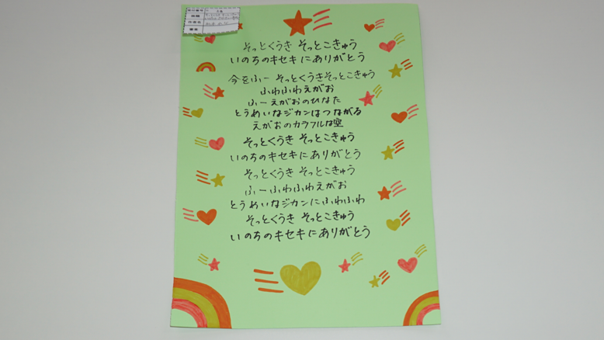 そっとくうき そっとこきゅう
いのちのキセキにありがとう
今をふー そっとくうきそっとこきゅう
ふわふわえがお
ふーえがおのひなた
とうめいなジカンはつながる
えがおのカラフルな空
そっとくうき そっとこきゅう
いのちのキセキにありがとう
そっとくうき そっとこきゅう
ふーふわふわえがお
とうめいなジカンにふわふわ
そっとくうき そっとこきゅう
いのちのキセキにありがとう